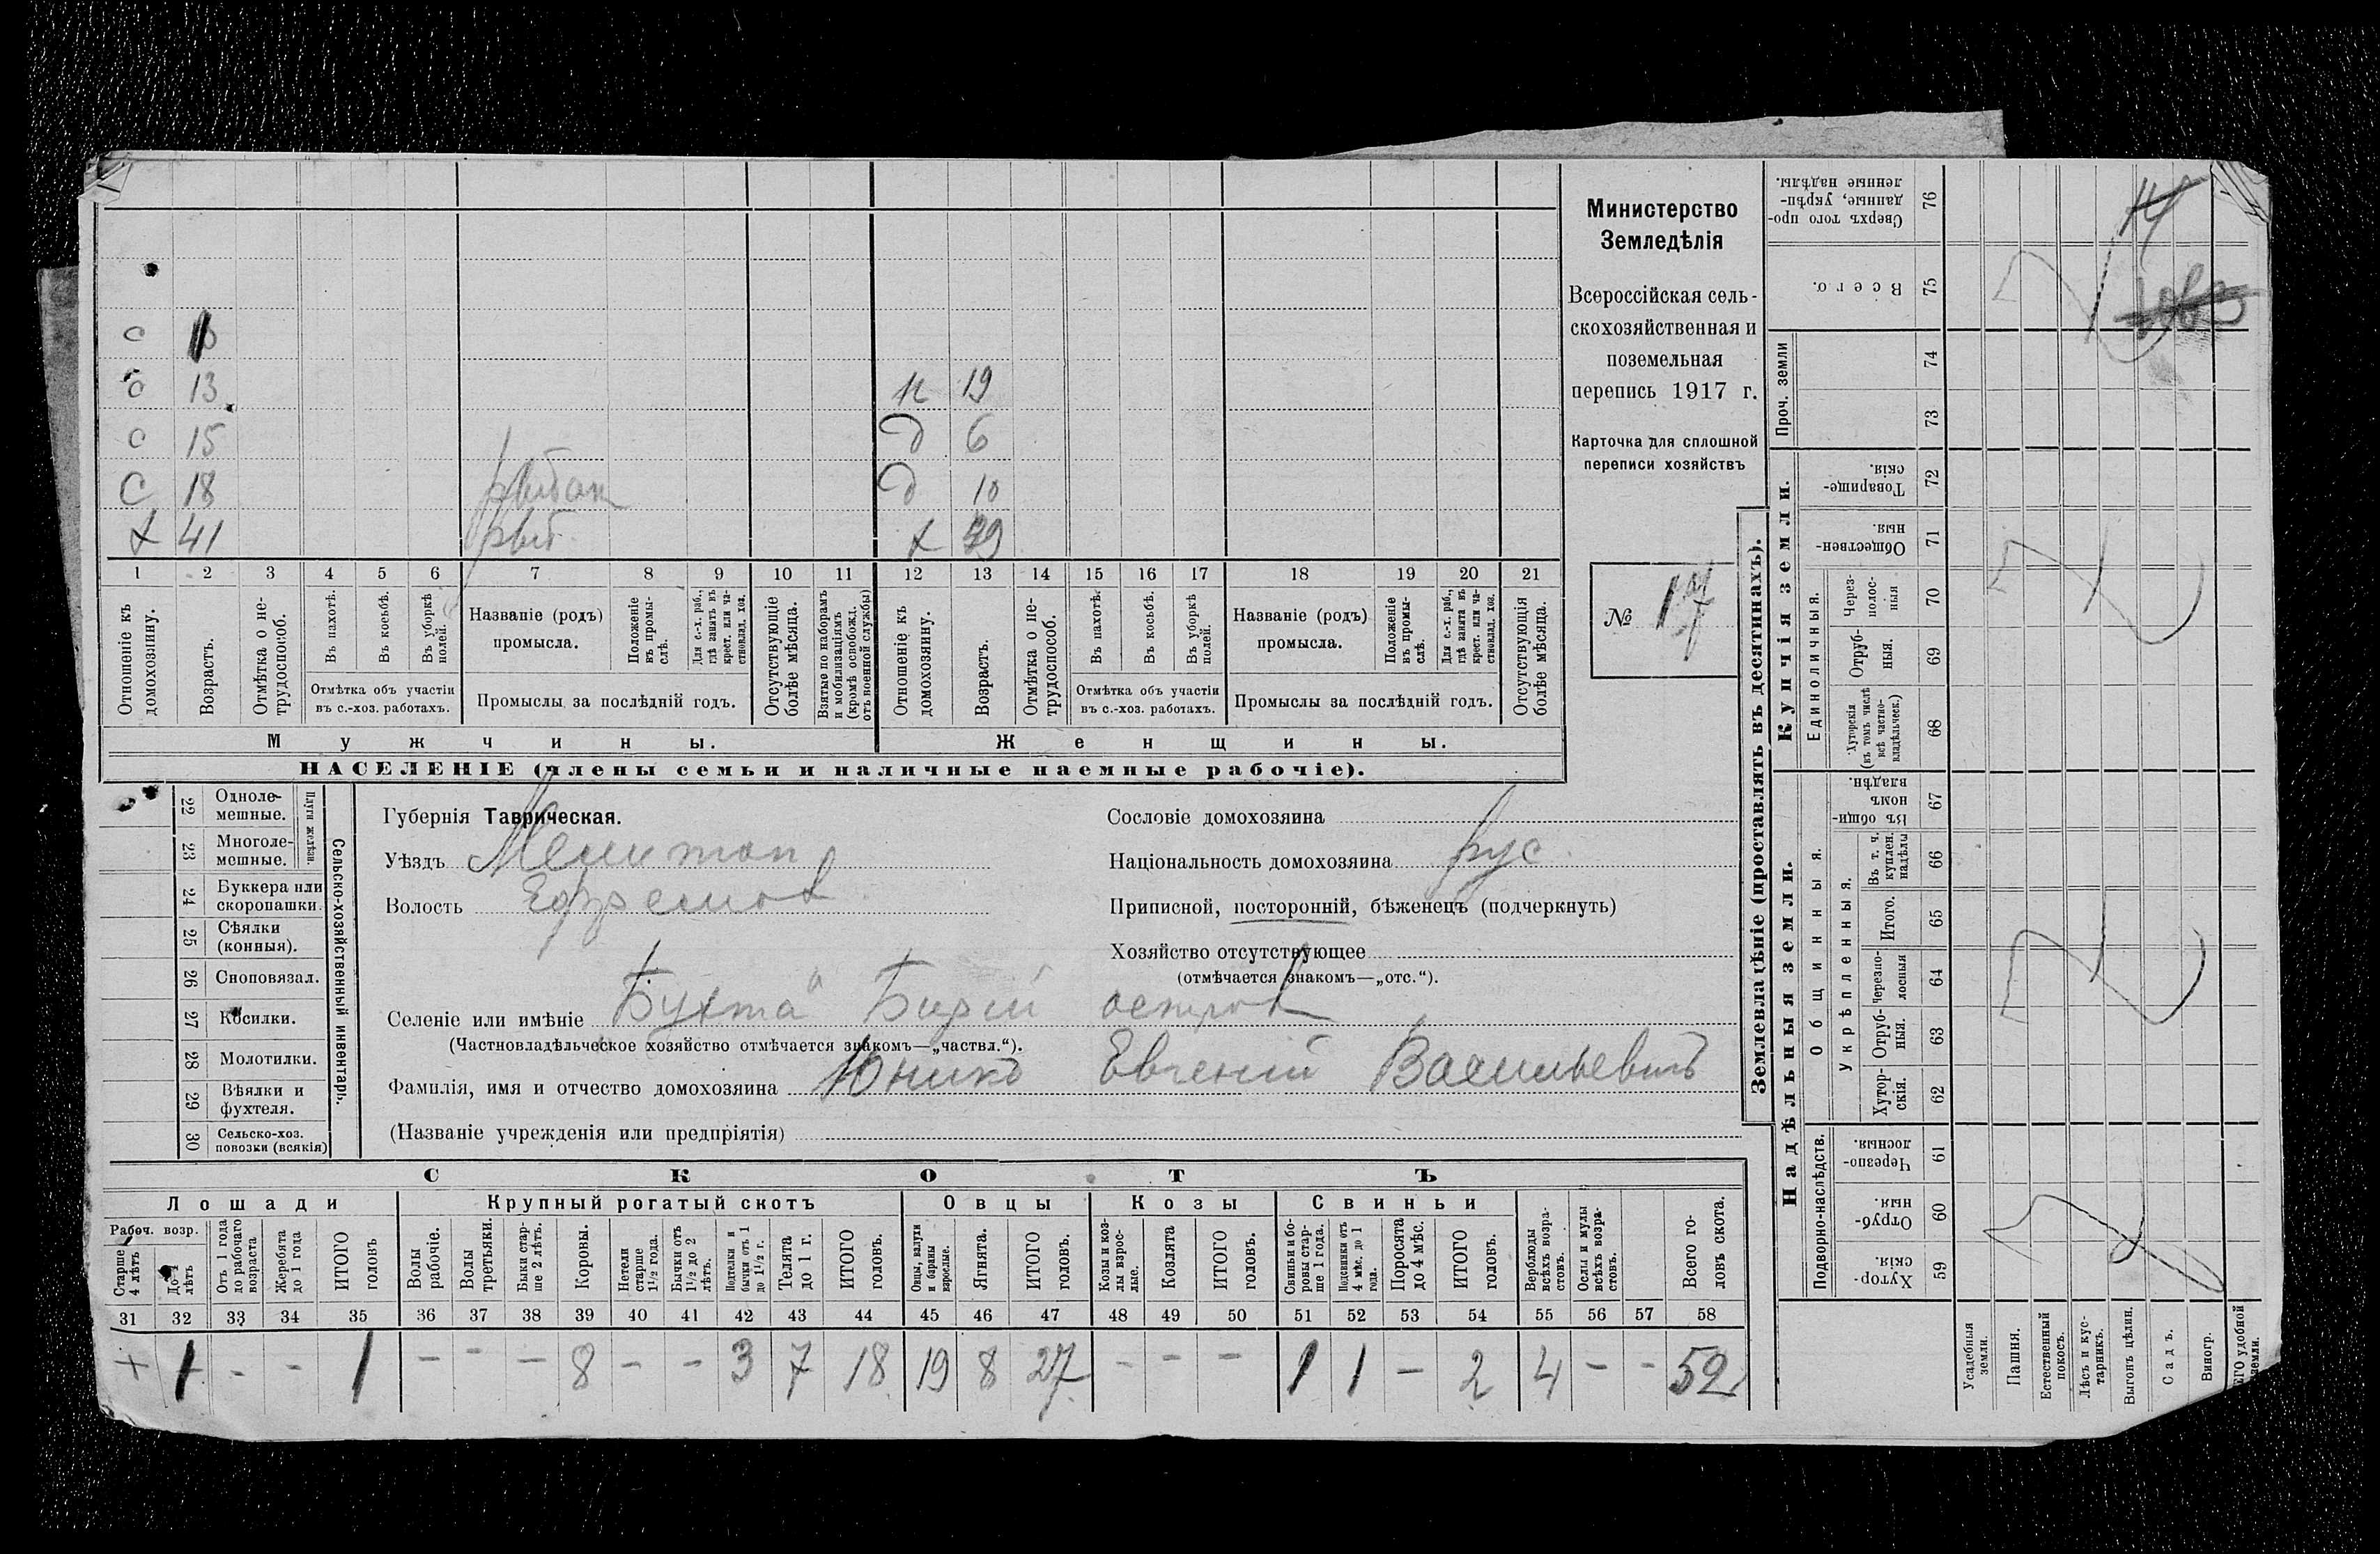 Министерство
Земледѣлія
Всероссійская сель-
скохозяйственная и
поземельная
перепись 1917 г.
Карточка для сплошной
переписи хозяйствъ
№ 17
с
с 13
с 15
С 18 рыбак
х 41 рыб.
19
д 6
д 10
х 39
1 2 3 4 5 6 7 8 9 10 11 12 13 14 15 16 17 18 19 20 21
Отношеніе къ домохозяину.
Возрастъ.
Отмѣтка о не-трудоспособ.
Въ пахотѣ.
Въ косьбѣ.
Въ уборкѣ полей.
Отмѣтка объ участіи
въ с.-хоз. работахъ.
Названіе (родъ)
промысла.
Положеніе въ промы-слѣ.
Для с.-х. раб., гдѣ занятъ въ крест. или ча-стновлад. хоз.
Промыслы за послѣдній годъ.
Отсутствующіе болѣе мѣсяца.
Взятые по наборамъ и мобилизаціямъ (кромѣ освобожд. отъ военной службы)
Отношеніе къ домохозяину.
Возрастъ.
Отмѣтка о не-трудоспособ.
Въ пахотѣ.
Въ косьбѣ.
Въ уборкѣ полей.
Отмѣтка объ участіи
въ с.-хоз. работахъ.
Названіе (родъ)
промысла.
Положеніе въ промы-слѣ.
Для с.-х. раб., гдѣ занята въ крест. или ча-стновлад. хоз.
Промыслы за послѣдній годъ.
Отсутствующія болѣе мѣсяца.
Мужчины.
Женщины.
НАСЕЛЕНІЕ (члены семьи и наличные наемные рабочіе).
22 Одноле-мешные.
23 Многоле-мешные.
Плуги желѣзн.
24 Буккера или скоропашки.
25 Сѣялки (конныя).
26 Сноповязал.
27 Косилки.
28 Молотилки.
29 Вѣялки и фухтеля.
30 Сельско-хоз. повозки (всякія)
Сельско-хозяйственный инвентарь.
Губернія Таврическая.
Уѣздъ Мелитоп
Волость Ефремов
Селеніе или имѣніе Бухта Бирюй остров
(Частновладѣльческое хозяйство отмѣчается знакомъ—„частвл.“).
Фамилія, имя и отчество домохозяина Юнико Евгеній Васильевичъ
(Названіе учрежденія или предпріятія)
Сословіе домохозяина
Національность домохозяина рус.
Приписной, посторонній, бѣженецъ (подчеркнуть)
Хозяйство отсутствующее
(отмѣчается знакомъ—„отс.“).
СКОТЪ
Лошади Крупный рогатый скотъ Овцы Козы Свиньи
Рабоч. возр.
Старше 4 лѣтъ
До 4 лѣтъ
Отъ 1 года до рабочаго возраста
Жеребята до 1 года
ИТОГО головъ
Волы рабочіе.
Волы третьяки.
Быки стар-ше 2 лѣтъ.
Коровы.
Нетели старше 1½ года.
Бычки отъ 1½ до 2 лѣтъ.
Подтелки и бычки отъ 1 до 1½ г.
Телята до 1 г.
ИТОГО головъ.
Овцы, валухи и бараны взрослые.
Ягнята.
ИТОГО головъ.
Козы и коз-лы взрос-лые.
Козлята
ИТОГО головъ.
Свиньи и бо-ровы стар-ше 1 года.
Подсвинки отъ 4 мѣс. до 1 года.
Поросята до 4 мѣс.
ИТОГО головъ.
Верблюды всѣхъ возра-стовъ.
Ослы и мулы всѣхъ возра-стовъ.
Всего го-ловъ скота.
31 32 33 34 35 36 37 38 39 40 41 42 43 44 45 46 47 48 49 50 51 52 53 54 55 56 57 58
+ 1 - - 1 - - - 8 - - 3 7 18 19 8 27 - - - 1 1 - 2 4 - - 52
Землевладѣніе (проставлять въ десятинахъ).
Надѣльныя земли.
Купчія земли.
Проч. земли
Подворно-наслѣдств.
Общинныя.
Укрѣпленныя.
Единоличныя.
Хутор-скія. 59
Отруб-ныя. 60
Черезпо-лосныя. 61
Хутор-скія. 62
Отруб-ныя. 63
Черезпо-лосныя 64
Итого. 65
Въ т. ч. куплен. надѣлы 66
Въ общин-номъ владѣн. 67
Хуторскія (въ томъ числѣ всѣ частно-владѣльческ.) 68
Отруб-ныя. 69
Через-полос-ныя 70
Обществен-ныя. 71
Товарище-скія. 72
73
74
Всего. 75
Сверхъ того про-данные, укрѣп-ленные надѣлы. 76
Усадебныя земли.
Пашня.
Естественный покосъ.
Лѣсъ и кус-тарникъ.
Выгонъ цѣлин.
Садъ.
Виногр.
ЕГО удобной земли.